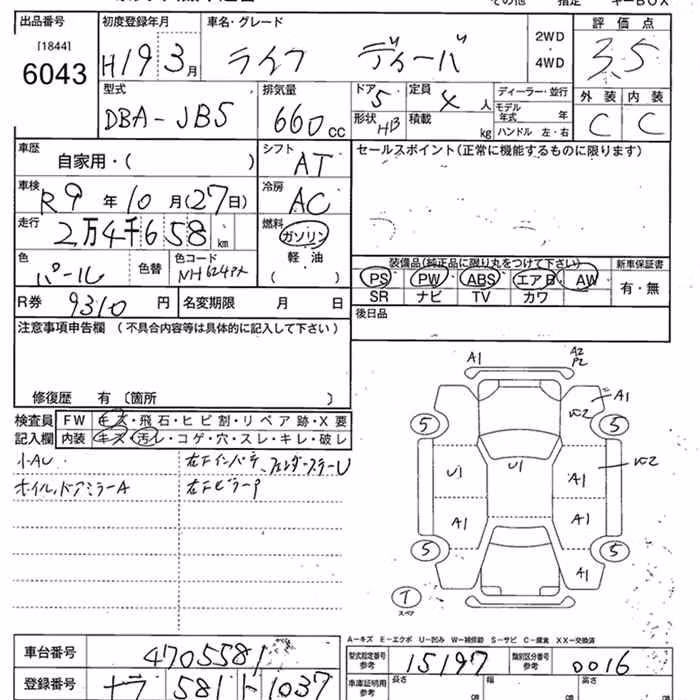 その他 指定 キーBOX
出品番号 初度登録年月 車名・グレード 評価点
[1844] 2WD
6043 H19 3月 ライフ ディーバ ・ 3.5
4WD
型式 排気量 ドア 5 定員 4 人 ディーラー・並行 外装 内装
DBA-JB5 660cc 形状 HB 積載 kg モデル年式 年 C C
ハンドル 左・右
車歴 自家用・( ) シフト AT セールスポイント(正常に機能するものに限ります)
車検 R9年10月(27日) 冷房 AC
走行 2万4千658km 燃料 ガソリン
軽油
( )
色 パール 色替 色コード NH624P 装備品(純正品に限り丸をつけて下さい) 新車保証書
PS PW ABS エアB AW 有・無
SR ナビ TV カワ
R券 9310円 名変期限 月 日 後日品
注意事項申告欄 (不具合内容等は具体的に記入して下さい)
修復歴 有〔箇所 〕
検査員 FW 飛石・ヒビ割・リペア跡・X要
記入欄 内装 キズ・汚レ・コゲ・穴・スレ・キレ・破レ
小AU
ホイル,ドアミラーA
A1 A2
P2
A1
5 5
U1 U1 A1
A1 A1
5 5
A1
T
スペア
A-キズ E-エクボ U-凹み W-補修跡 S-サビ C-腐食 XX-交換済
車台番号 4705581 型式指定番号 参考 15197 類別区分番号 参考 0016
登録番号 581 1037 車庫証明用 参考 長さ 幅 高さ